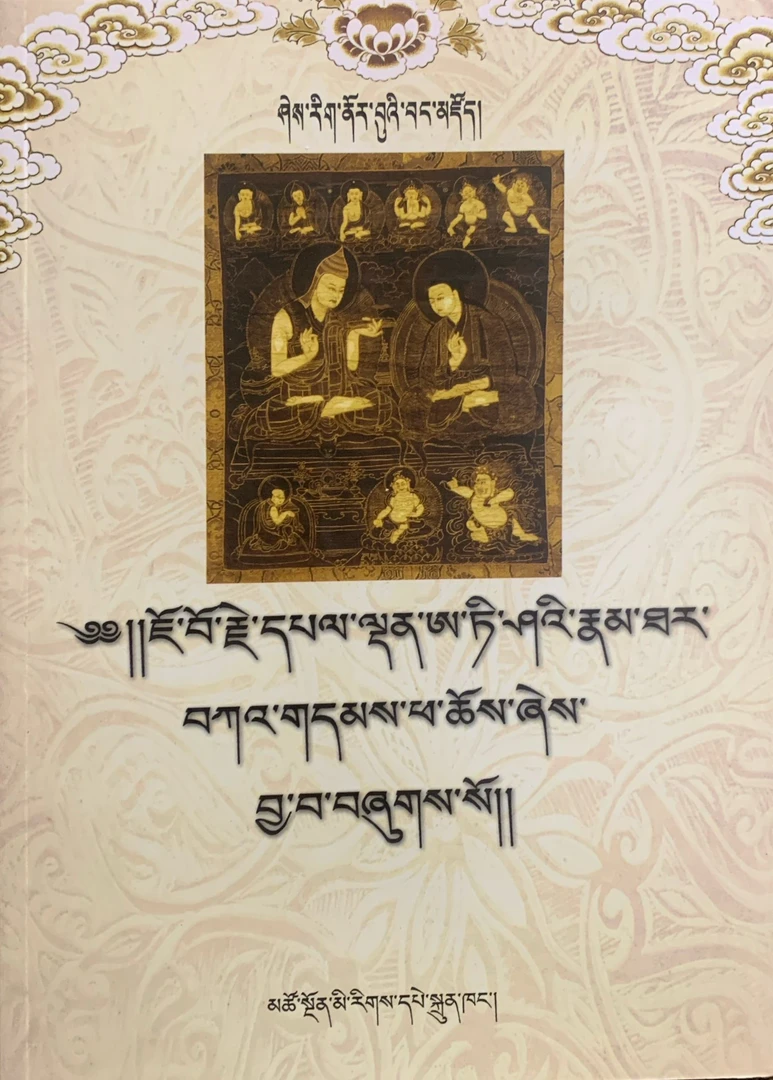 ཤེས་རིག་ནོར་བུའི་བང་མཛོད།
༄༅།།ཇོ་བོ་རྗེ་དཔལ་ལྡན་ཨ་ཏི་ཤའི་རྣམ་ཐར་
བཀའ་གདམས་ཕ་ཆོས་ཞེས་
བྱ་བ་བཞུགས་སོ།།
མཚོ་སྔོན་མི་རིགས་དཔེ་སྐྲུན་ཁང་།